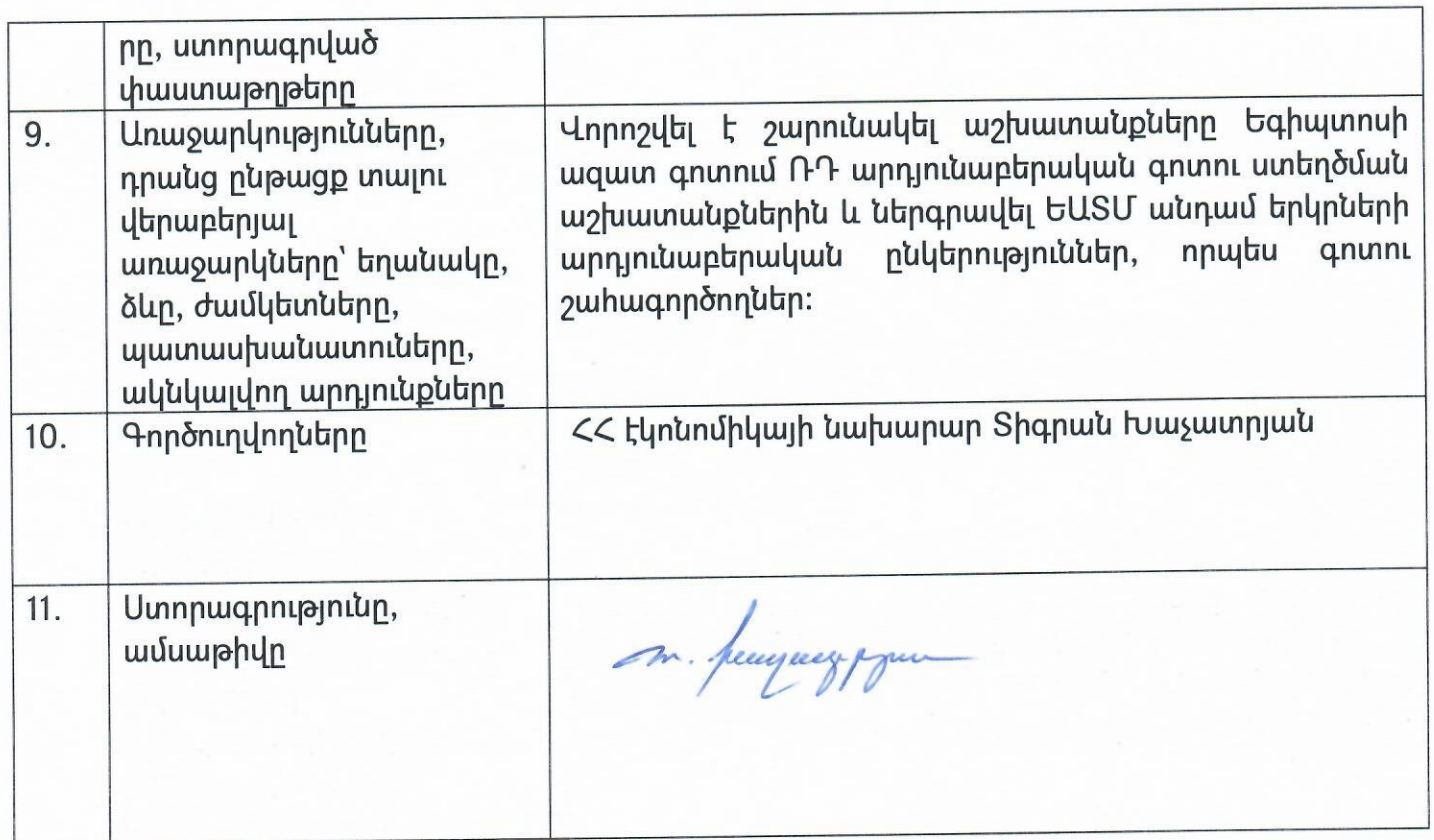 րը, ստորագրված
փաստաթղթերը
9.
Առաջարկությունները,
դրանց ընթացք տալու
վերաբերյալ
առաջարկները՝ եղանակը,
ձևը, ժամկետները,
պատասխանատուները,
ակնկալվող արդյունքները
Վորոշվել է շարունակել աշխատանքները Եգիպտոսի
ազատ գոտում ՌԴ արդյունաբերական գոտու ստեղծման
աշխատանքներին և ներգրավել ԵԱՏՄ անդամ երկրների
արդյունաբերական ընկերություններ, որպես գոտու
շահագործողներ:
10.
Գործուղվողները
ՀՀ էկոնոմիկայի նախարար Տիգրան Խաչատրյան
11.
Ստորագրությունը,
ամսաթիվը